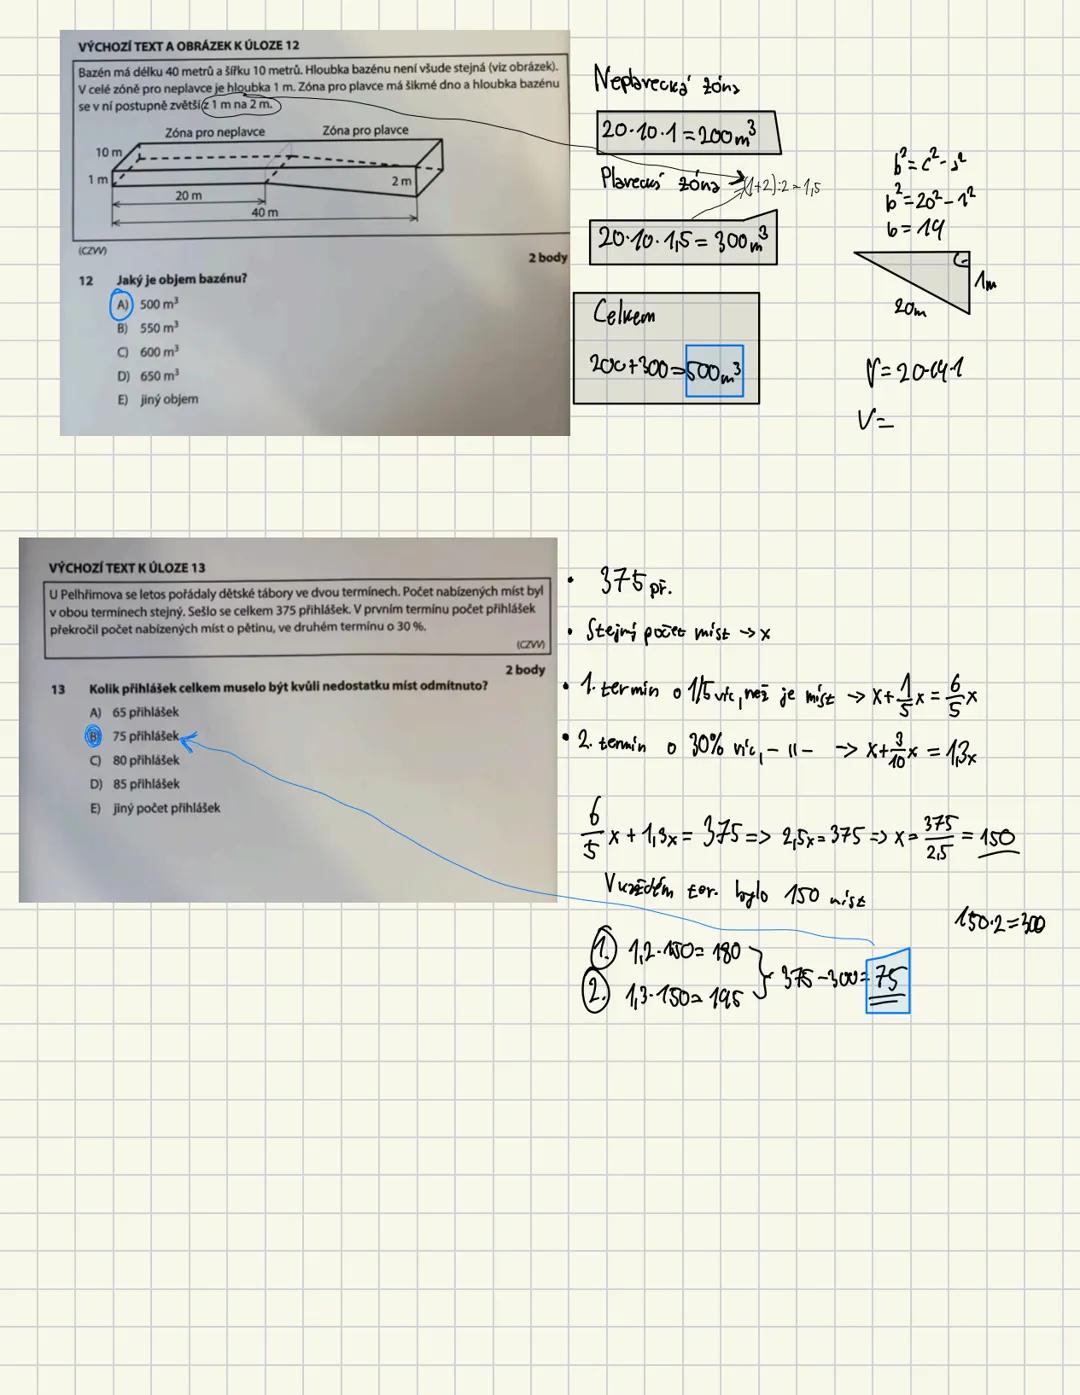 VÝCHOZÍ TEXT A OBRÁZEK K ÚLOZE 12
Bazén má délku 40 metrů a šířku 10 metrů. Hloubka bazénu není všude stejná (viz obrázek).
V celé zóně pro neplavce je hloubka 1 m. Zóna pro plavce má šikmé dno a hloubka bazénu
se v ní postupně zvětší z 1 m na 2 m.
Zóna pro neplavce
Zóna pro plavce
10 m
1 m
2 m
20 m
40 m
(CZVV)
2 body
12 Jaký je objem bazénu?
A) 500 m³
B) 550 m³
C) 600 m³
D) 650 m³
E) jiný objem
Neplavecká zóna
20·10·1 = 200 m³
Plavecká zóna
(1+2):2 = 1,5
20·10·1,5 = 300 m³
Celkem
200+300=500 m³
b²=20²-1²
b=19
1m
20m
V=
VÝCHOZÍ TEXT K ÚLOZE 13
U Pelhřimova se letos pořádaly dětské tábory ve dvou termínech. Počet nabízených míst byl
v obou termínech stejný. Sešlo se celkem 375 přihlášek. V prvním termínu počet přihlášek
překročil počet nabízených míst o pětinu, ve druhém termínu o 30 %.
(CZVV)
2 body
13 Kolik přihlášek celkem muselo být kvůli nedostatku míst odmítnuto?
A) 65 přihlášek
B) 75 přihlášek
C) 80 přihlášek
D) 85 přihlášek
E) jiný počet přihlášek
• 375 př.
• Stejný počet míst → x
• 1. termín o 1/5 víc, než je míst → x+1/5x = 6/5x
• 2. termín o 30% víc, -||- → x+3/10x = 1,3x
6/5x + 1,3x = 375 => 2,5x = 375 => x = 375/2,5 = 150
V každém ter. bylo 150 míst
150·2=300
1. 1,2·150= 180
2. 1,3·150= 195
375-300=75